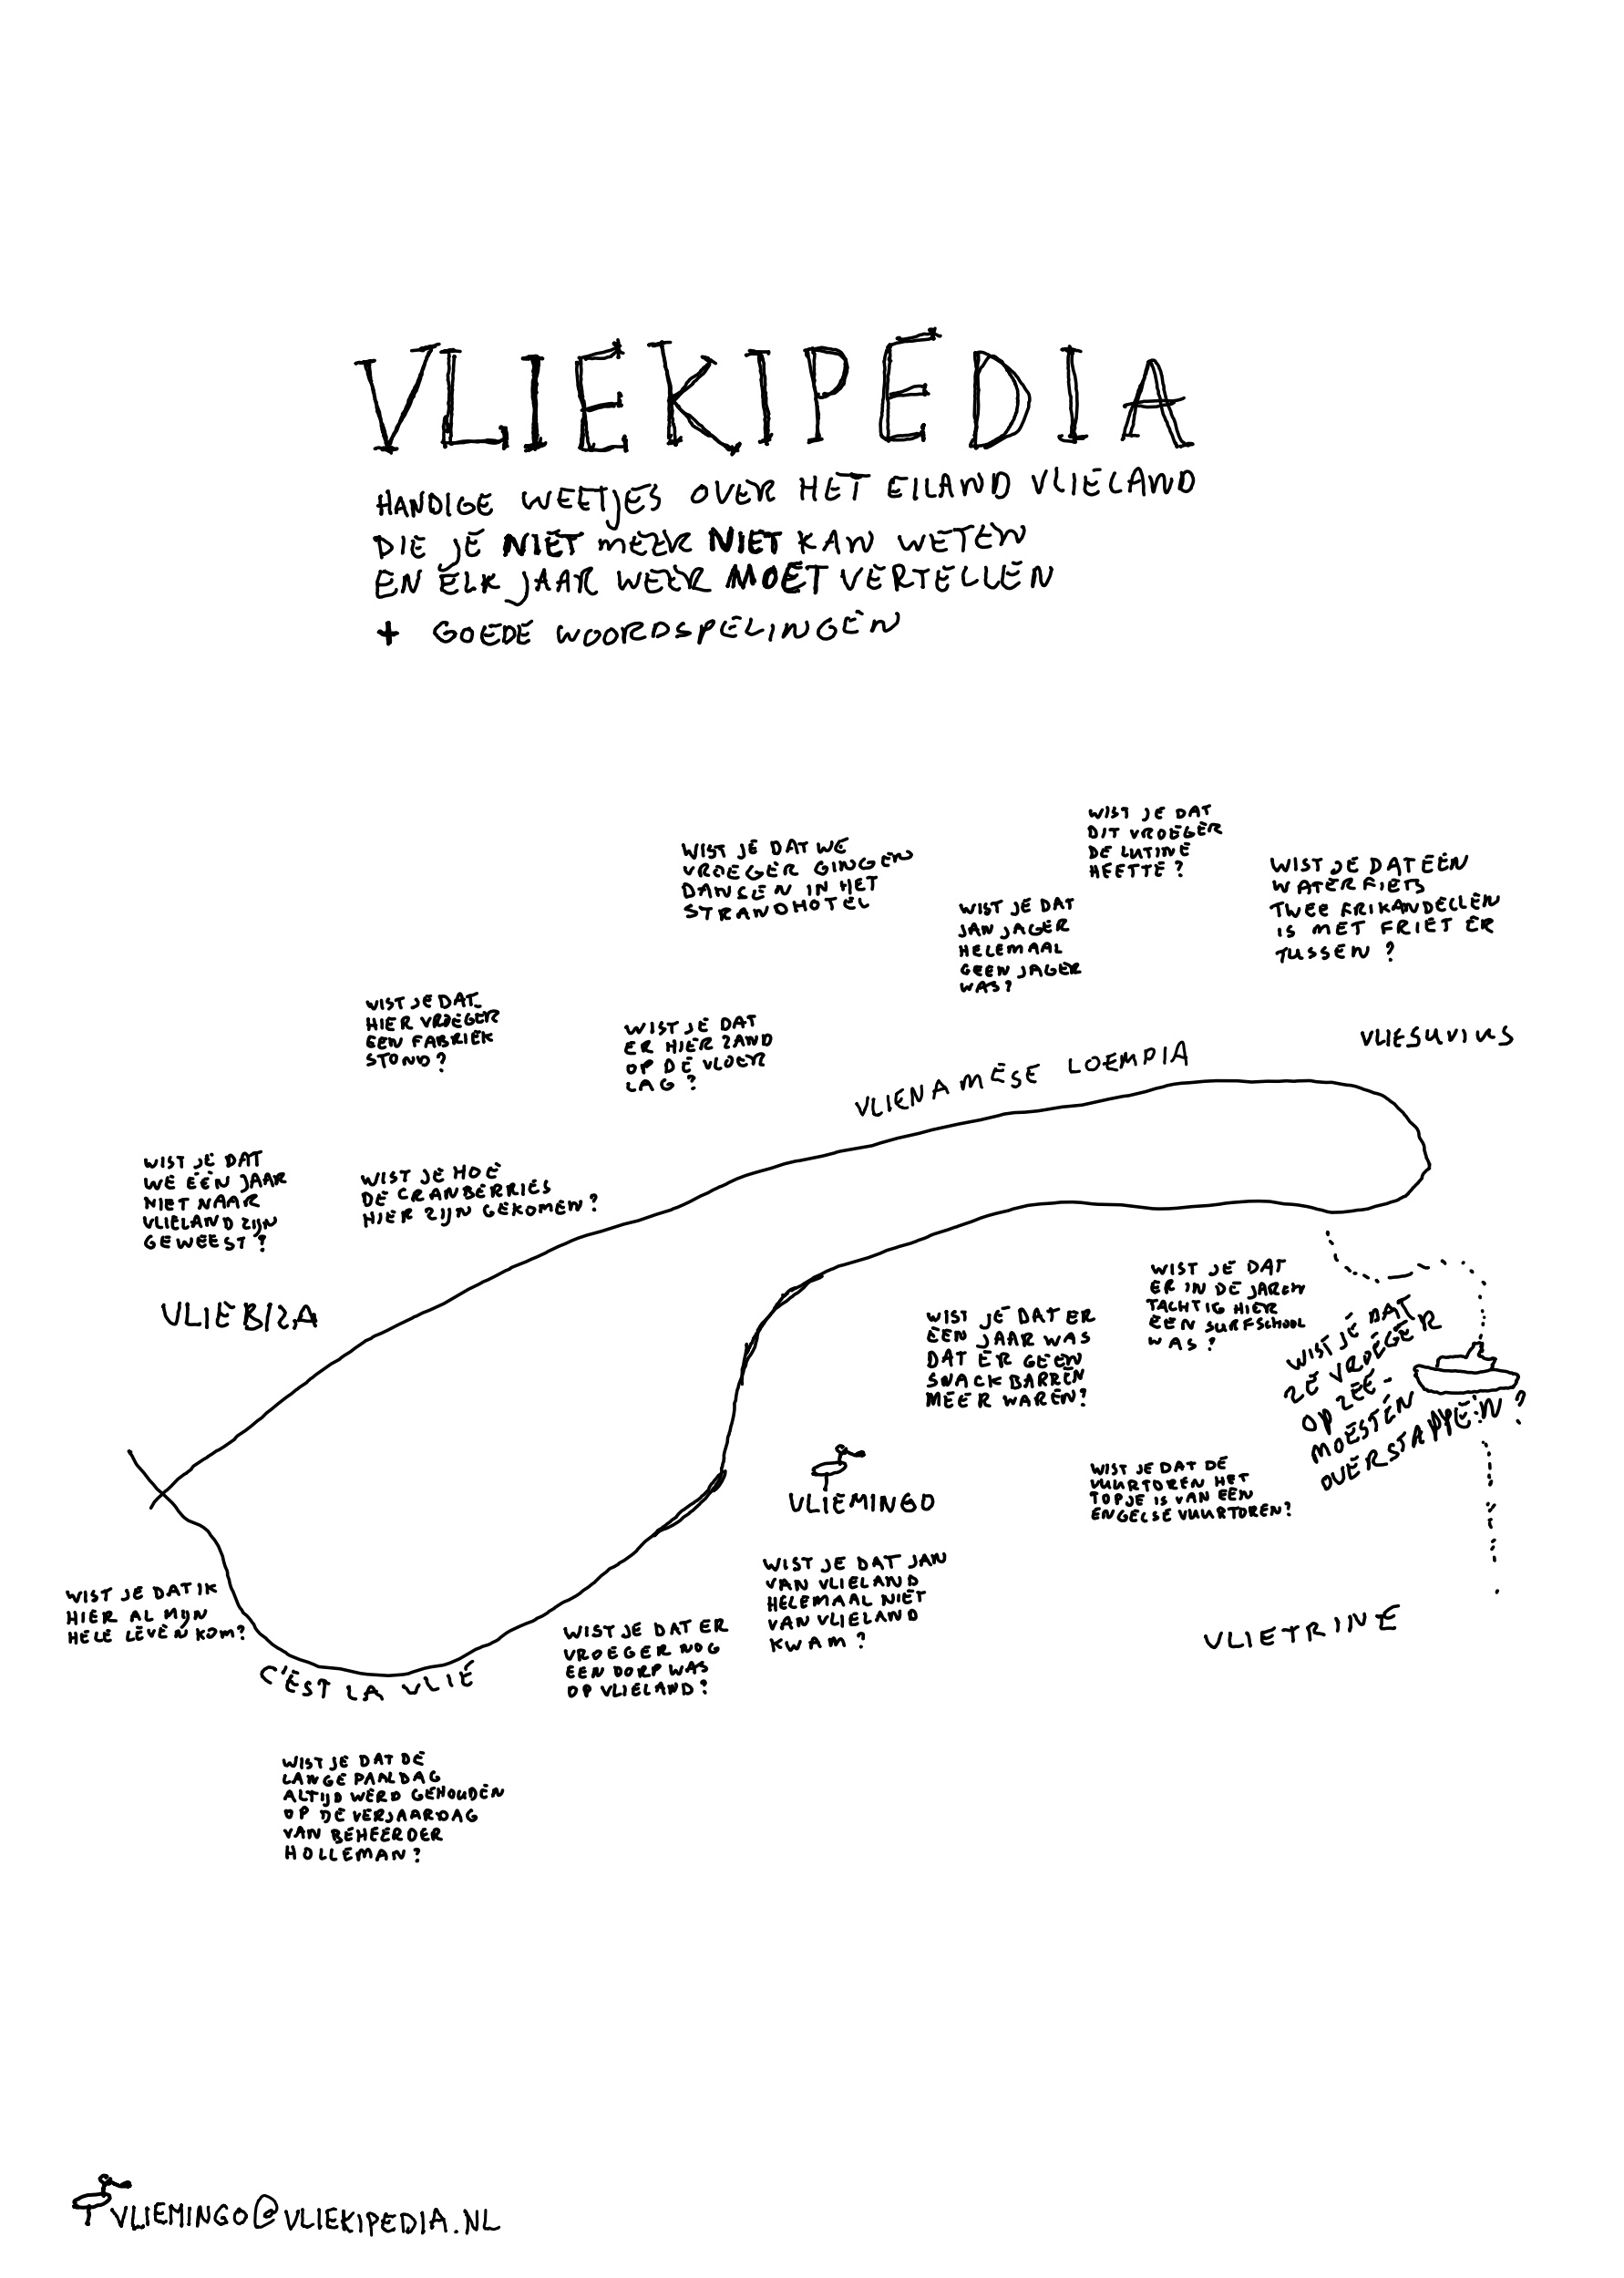 VLIEKIPEDIA
HANDIGE WEETJES OVER HET EILAND VLIELAND
DIE JE NIET MEER NIET KAN WETEN
EN ELK JAAR WEER MOET VERTELLEN
+ GOEDE WOORDSPELINGEN
WIST JE DAT WE
VROEGER GINGEN
DANSEN IN HET
STRANDHOTEL
WIST JE DAT
DIT VROEGER
DE LUTINE
HEETTE?
WIST JE DAT EEN
WATERFIETS
TWEE FRIKANDELLEN
IS MET FRIET ER
TUSSEN?
WIST JE DAT
JAN JAGER
HELEMAAL
GEEN JAGER
WAS?
WIST JE DAT
HIER VROEGER
EEN FABRIEK
STOND?
WIST JE DAT
ER HIER ZAND
OP DE VLOER
LAG?
VLIESUVIUS
VLIENAMESE LOEMPIA
WIST JE DAT
WE ÉÉN JAAR
NIET NAAR
VLIELAND ZIJN
GEWEEST?
WIST JE HOE
DE CRANBERRIES
HIER ZIJN GEKOMEN?
VLIEBIZA
WIST JE DAT ER
EEN JAAR WAS
DAT ER GEEN
SNACKBARREN
MEER WAREN?
WIST JE DAT
ER IN DE JAREN
TACHTIG HIER
EEN SURFSCHOOL
WAS?
WIST JE DAT
ZE VROEGER
OP ZEE
MOESTEN
OVERSTAPPEN?
VLIEMINGO
WIST JE DAT DE
VUURTOREN HET
TOPJE IS VAN EEN
ENGELSE VUURTOREN?
WIST JE DAT JAN
VAN VLIELAND
HELEMAAL NIET
VAN VLIELAND
KWAM?
WIST JE DAT IK
HIER AL MIJN
HELE LEVEN KOM?
C'EST LA VLIE
WIST JE DAT ER
VROEGER NOG
EEN DORP WAS
OP VLIELAND?
VLIETRINE
WIST JE DAT DE
LANGE PAALDAG
ALTIJD WERD GEHOUDEN
OP DE VERJAARDAG
VAN BEHEERDER
HOLLEMAN?
VLIEMINGO@VLIEKIPEDIA.NL